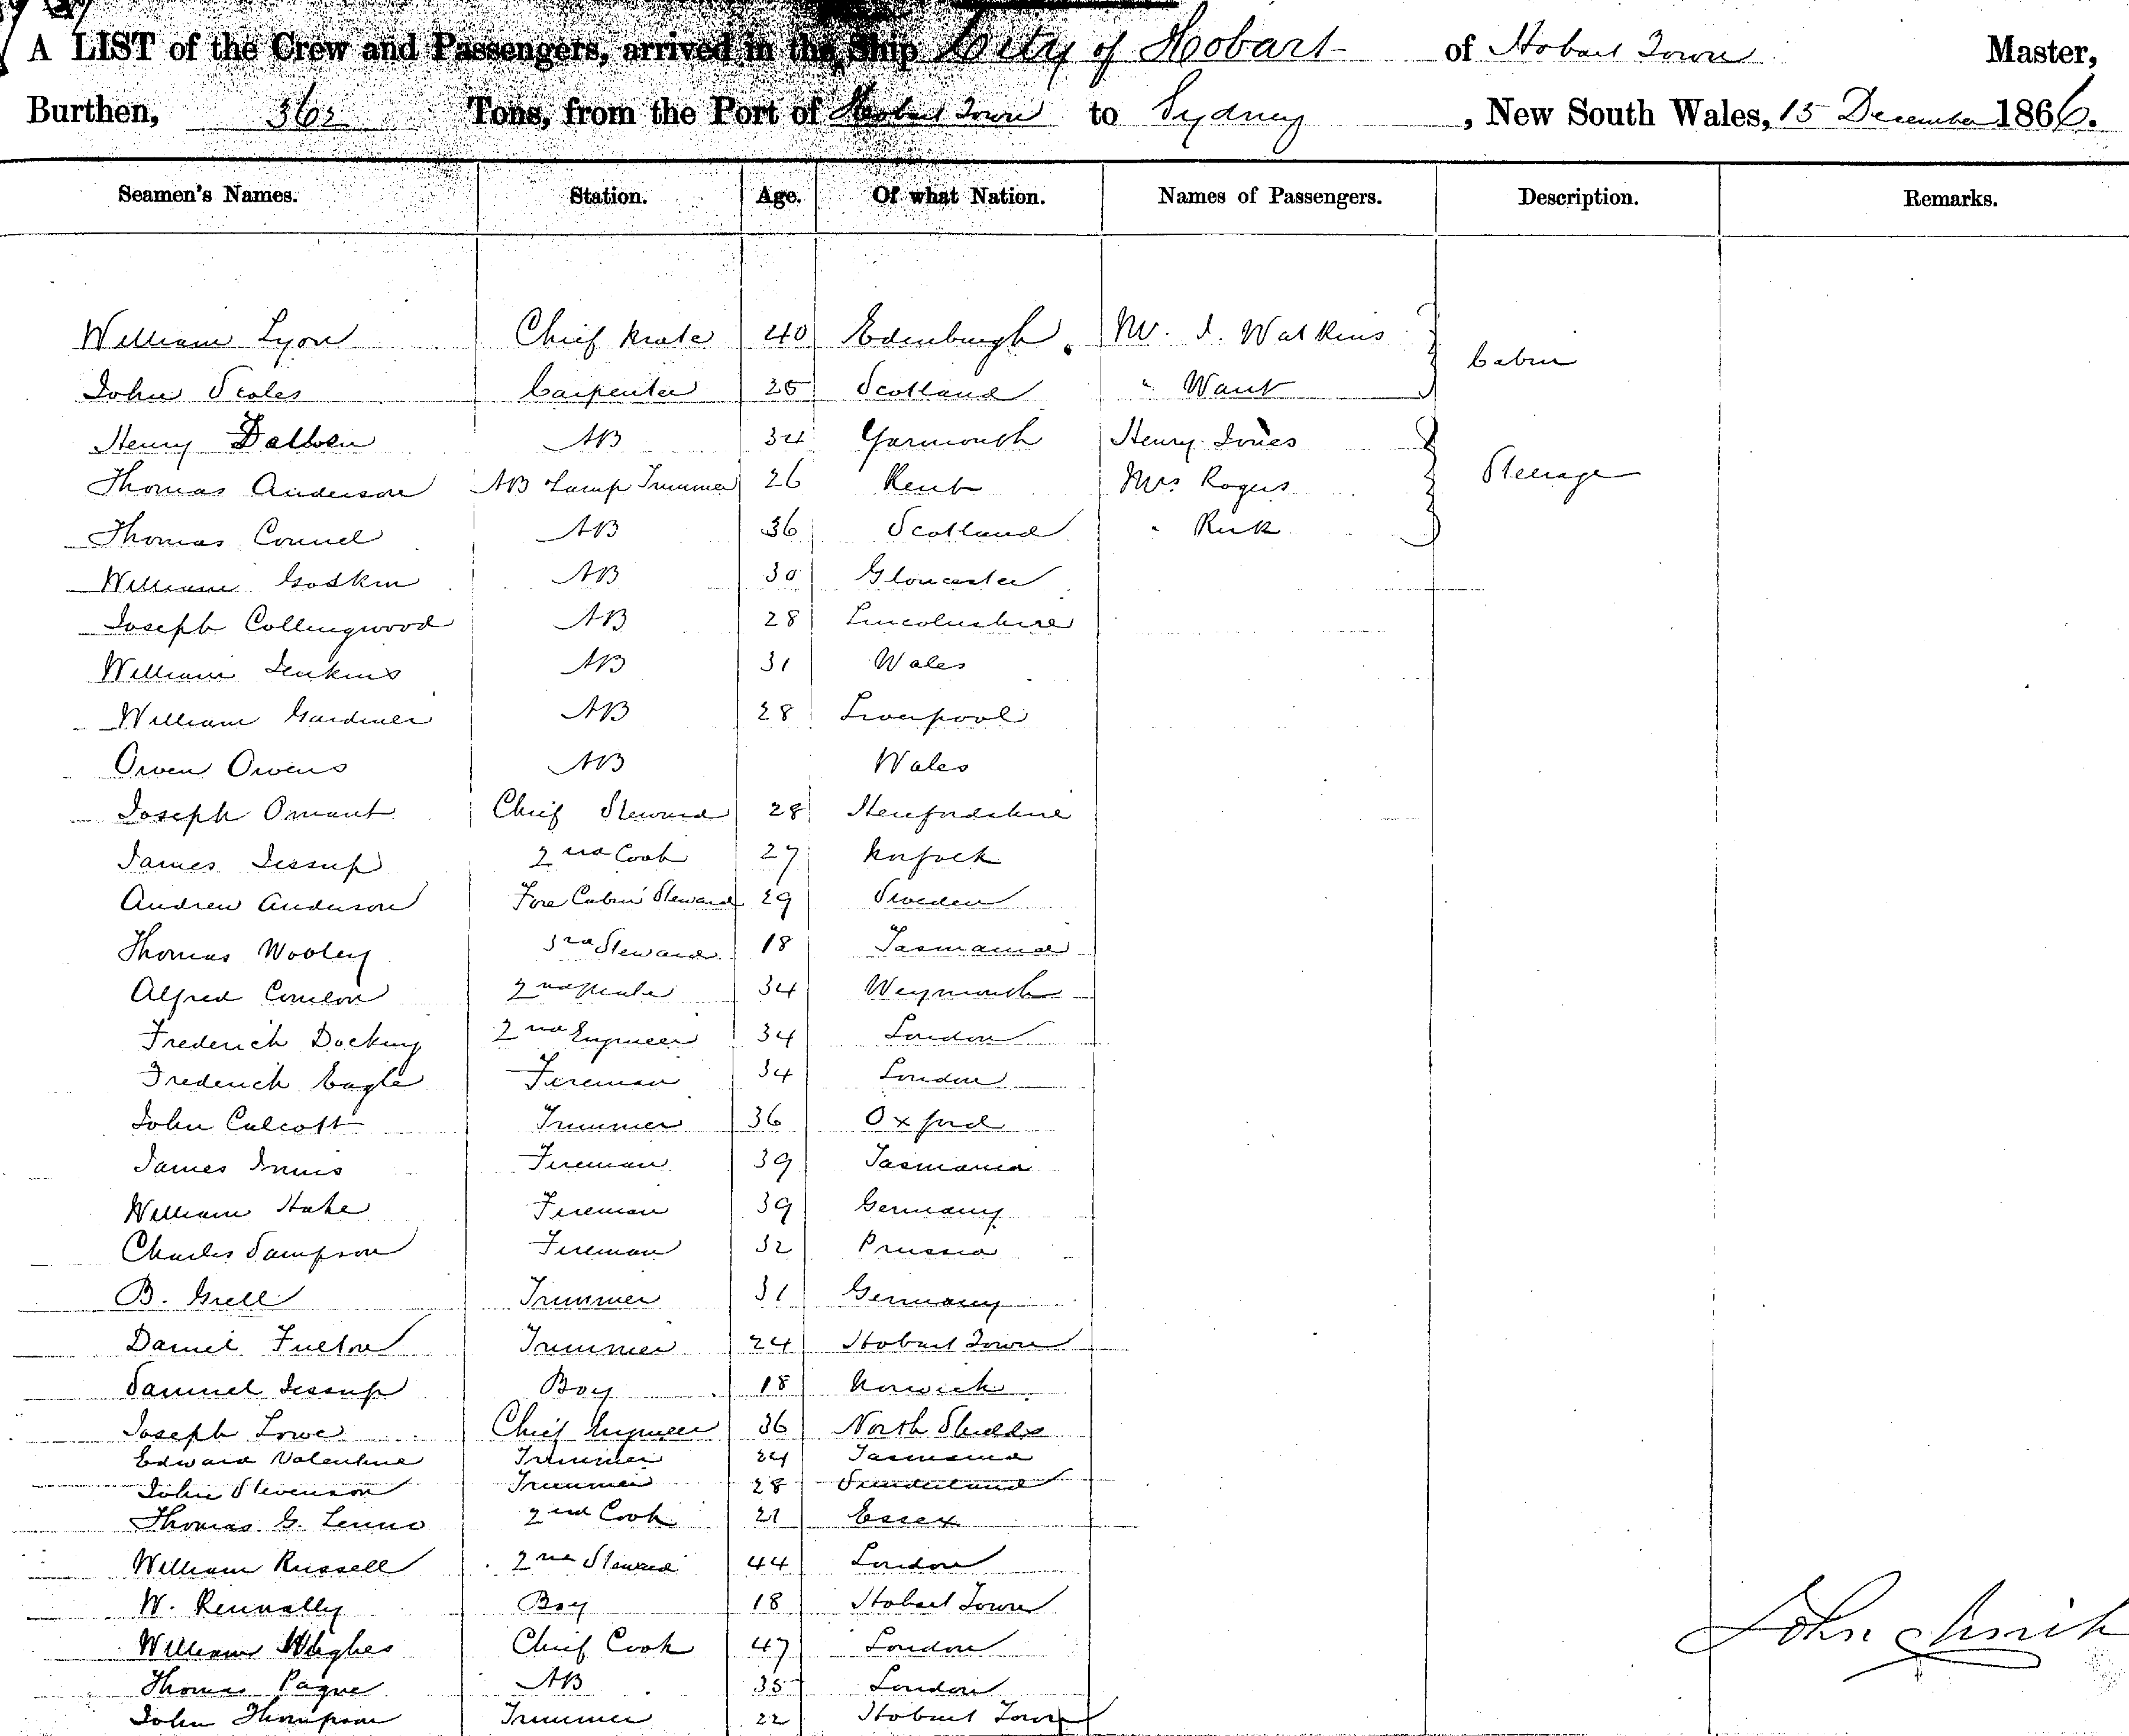 A LIST of the Crew and Passengers, arrived in the Ship City of Hobart of Hobart Town Master,
Burthen, 363 Tons, from the Port of Hobart Town to Sydney, New South Wales, 15 December 1866.
Seamen's Names. Station. Age. Of what Nation. Names of Passengers. Description. Remarks.
William Lyon Chief Mate 40 Edinburgh. Mr. J. Watkins Cabin
John Scoles Carpenter 25 Scotland " Want
Henry AB 34 Yarmouth Henry Jones Steerage
Thomas Anderson AB Lamp Trimmer 26 Kent Mrs Rogers
Thomas Connel AB 36 Scotland "
William Godkin AB 30 Gloucester
Joseph Collingwood AB 28 Lincolnshire
William Jenkins AB 31 Wales
William Gardiner AB 28 Liverpool
Owen Owens AB Wales
Joseph Omant Chief Steward 28 Herefordshire
James Jessup 2nd Cook 27 Norfolk
Andrew Anderson Fore Cabin Steward 29 Sweden
Thomas Wooley 3rd Steward 18 Tasmania
Alfred 2nd Mate 34 Weymouth
Frederick Docking 2nd Engineer 34 London
Frederick Eagle Fireman 34 London
John Calcott Trimmer 36 Oxford
James Innis Fireman 39 Tasmania
William Hake Fireman 39 Germany
Charles Sampson Fireman 32 Prussia
B. Grell Trimmer 31 Germany
Daniel Fulton Trimmer 24 Hobart Town
Samuel Jessup Boy 18 Norwich
Joseph Lowe Chief Engineer 36 North Shields
Edward Valentine Trimmer 24 Tasmania
John Stevenson Trimmer 28 Sunderland
Thomas G. 2nd Cook 21 Essex
William Russell 2nd Steward 44 London
W. Rennally Boy 18 Hobart Town
William Hughes Chief Cook 47 London
Thomas Pagne AB 35 London
John Thompson Trimmer 22 Hobart Town
John Smith